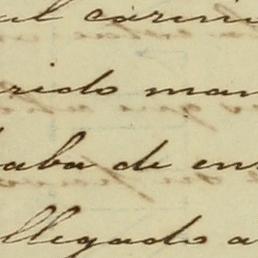 al carim
rido man
aba de en
llegado a